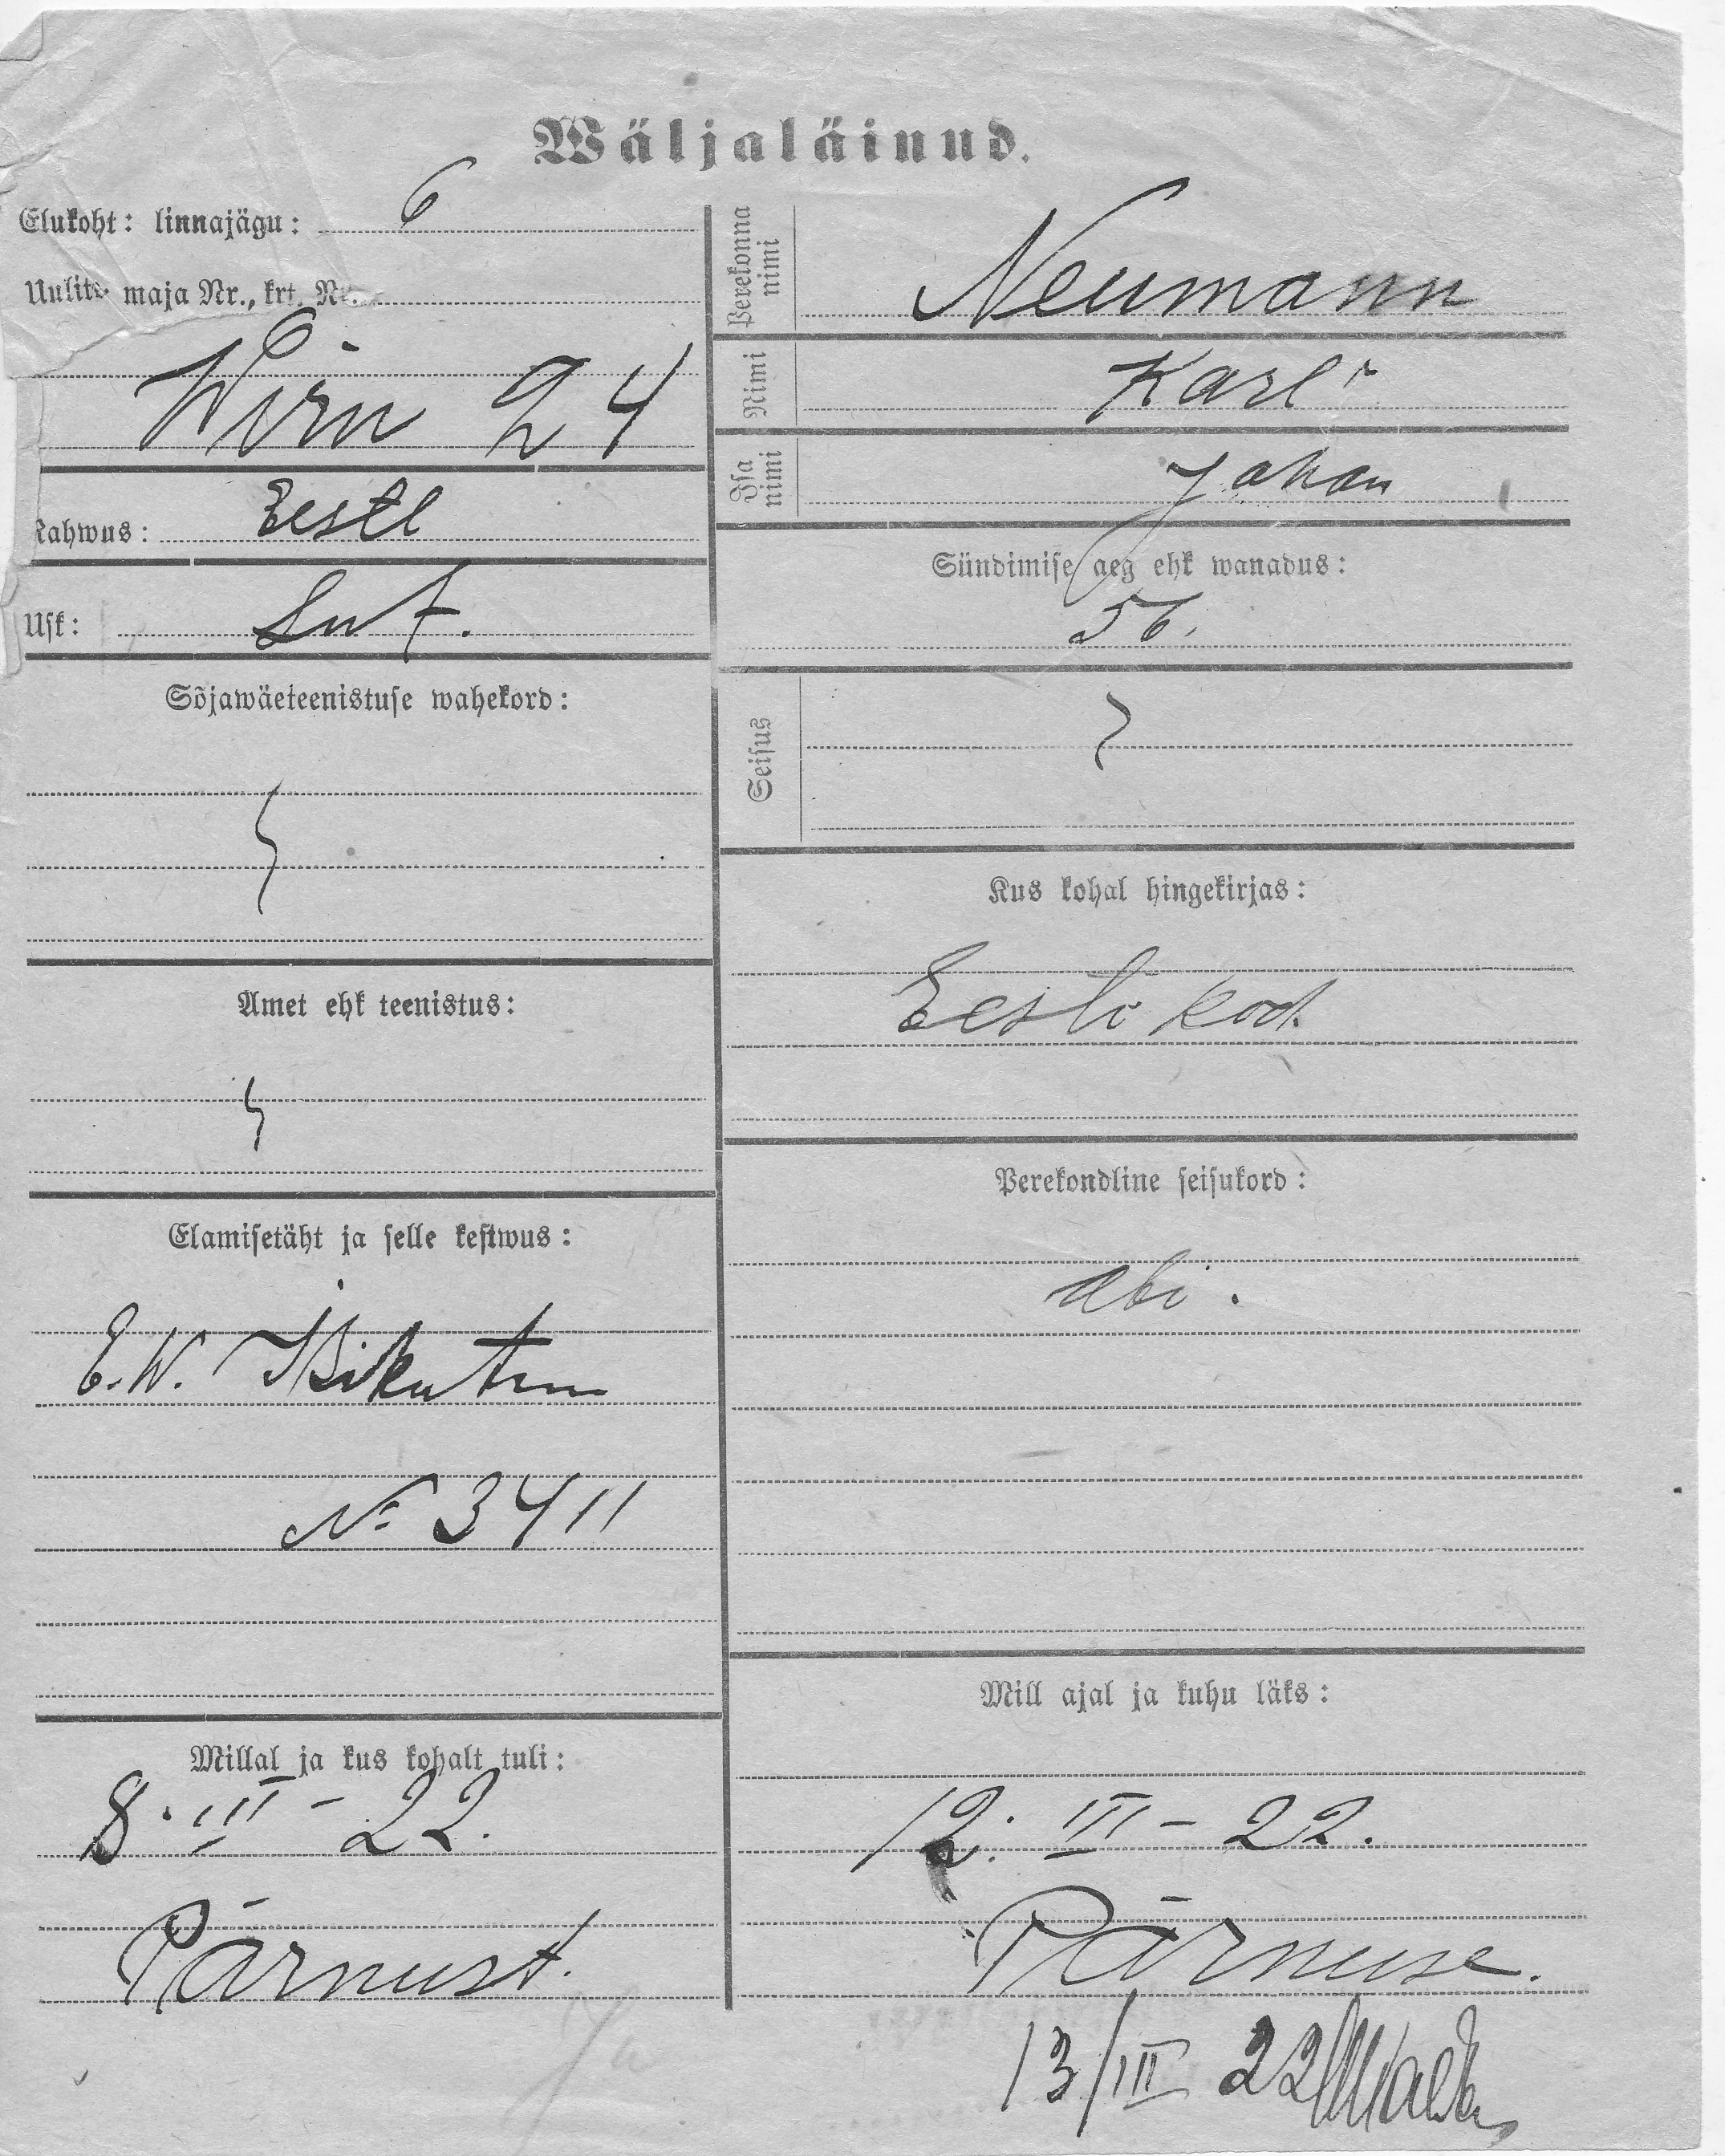 Wäljaläinud.
Elukoht: linnajägu: 6
Uulits maja Nr., krt. Nr.
Wiru 24
Rahwus: Eestl
Usk: Lut.
Sõjawäeteenistuse wahekord:
Amet ehk teenistus:
Elamisetäht ja selle kestwus:
E.W. Isikutun
№ 3411
Millal ja kus kohalt tuli:
8. III – 22.
Pärnust.
Perekonna nimi Neumann
Nimi Karl
Isa nimi Johan
Sündimise aeg ehk wanadus:
56.
Seisus
Kus kohal hingekirjas:
Eesti kod.
Perekondline seisukord:
abi.
Mill ajal ja kuhu läks:
12. III – 22.
Pärnuse.
13/III 22